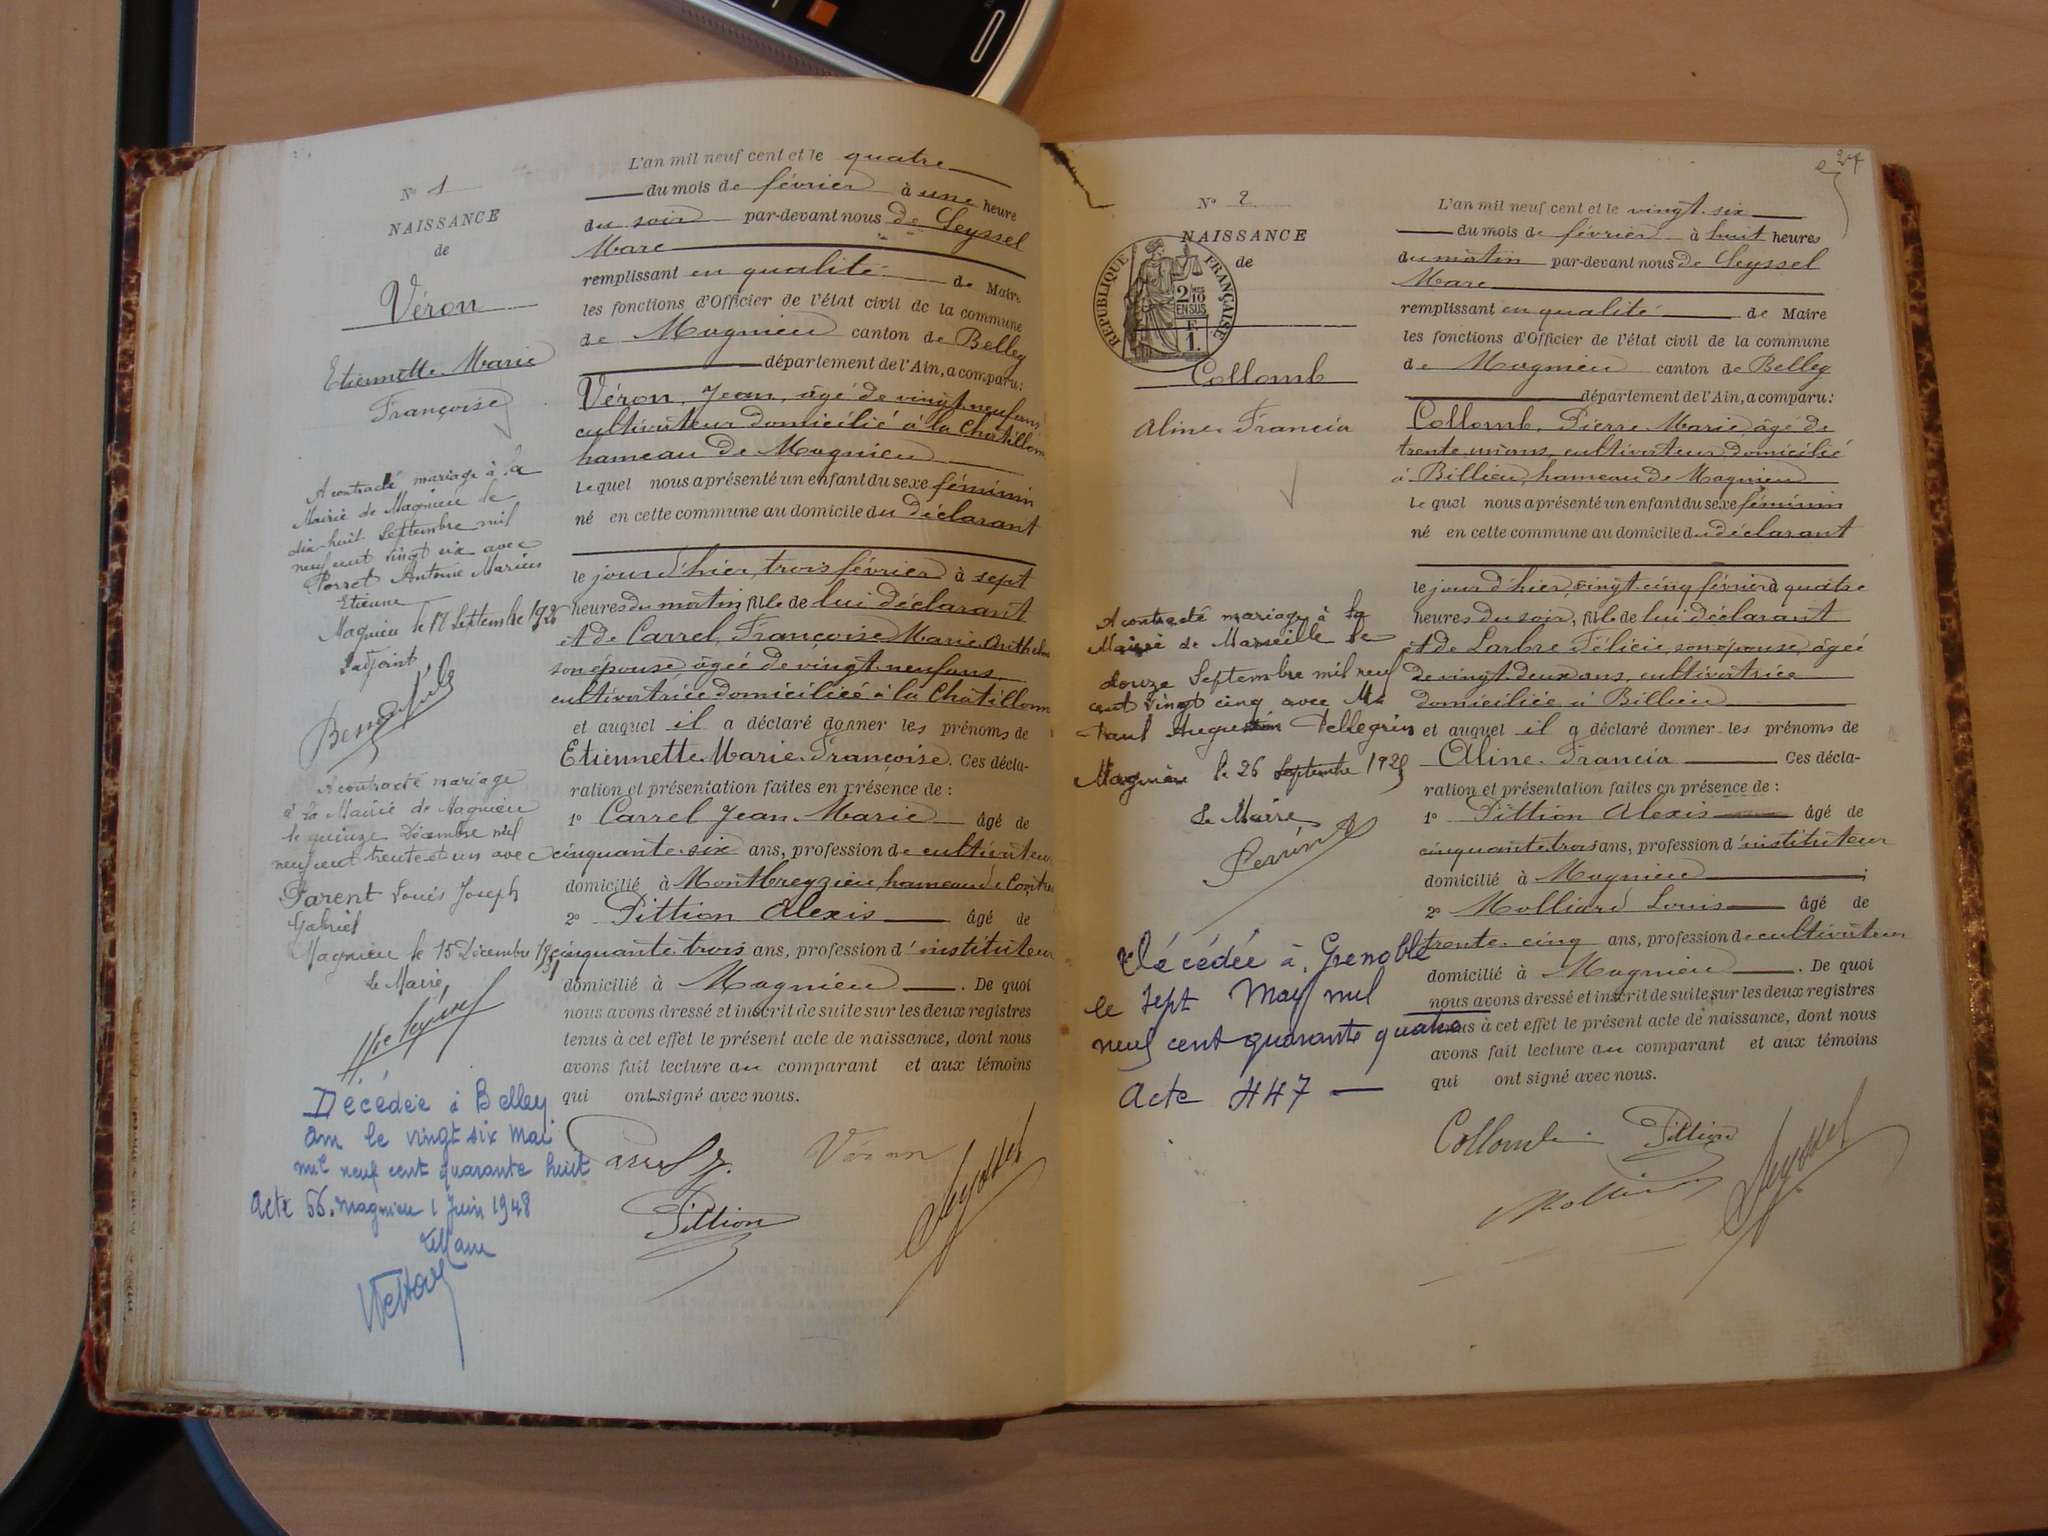 Nº 1
NAISSANCE
de
Véron
Etiennette Marie
Françoise
A contracté mariage à la
Mairie de Magnieu le
dix-huit Septembre mil
neuf cent vingt six avec
Porret Antoine Marius
Etienne
Magnieu le 18 Septembre 1926
L'adjoint
A contracté mariage
à la Mairie de Magnieu
le quinze Décembre mil
neuf cent trente et un avec
Parent Louis Joseph
Gabriel
Magnieu le 15 Décembre 1931
Le Maire
Décédée à Belley
Ain le vingt six Mai
mil neuf cent quarante huit
Acte 56. Magnieu 1 Juin 1948
Le Maire
L'an mil neuf cent et le quatre
du mois de février à une heure
du soir par-devant nous de Seyssel
Marc
remplissant en qualité de Maire
les fonctions d'Officier de l'état civil de la commune
de Magnieu canton de Belley
département de l'Ain, a comparu:
Véron, Jean, âgé de vingt-neuf ans,
cultivateur domicilié à la Chatillonn
hameau de Magnieu
Lequel nous a présenté un enfant du sexe féminin
né en cette commune au domicile du déclarant
le jour d'hier, trois février à sept
heures du matin fille de lui déclarant
et de Carrel, Françoise Marie Anthelm
son épouse, âgée de vingt-neuf ans,
cultivatrice domiciliée à la Chatillonn
et auquel il a déclaré donner les prénoms de
Etiennette Marie Françoise. Ces décla-
ration et présentation faites en présence de :
1º Carrel Jean Marie âgé de
cinquante-six ans, profession de cultivateur
domicilié à Montbreyzieu, hameau de Contre
2º Pittion Alexis âgé de
cinquante trois ans, profession d'instituteur
domicilié à Magnieu. De quoi
nous avons dressé et inscrit de suite sur les deux registres
tenus à cet effet le présent acte de naissance, dont nous
avons fait lecture au comparant et aux témoins
qui ont signé avec nous.
Carrel J. Véron
Pittion Seyssel
27
Nº 2
NAISSANCE
de
RÉPUBLIQUE FRANÇAISE
2/10
EN SUS
F.
1.
Collomb
Aline Francia
A contracté mariage à la
Mairie de Marseille le
douze Septembre mil neuf
cent vingt cinq avec Mr
Paul Augustin Pellegrin
Magnieu le 26 Septembre 1925
Le Maire
Décédée à Grenoble
le sept May mil
neuf cent quarante quatre
Acte 447
L'an mil neuf cent et le vingt-six
du mois de février à huit heures
du matin par-devant nous de Seyssel
Marc
remplissant en qualité de Maire
les fonctions d'Officier de l'état civil de la commune
de Magnieu canton de Belley
département de l'Ain, a comparu:
Collomb, Pierre Marie, âgé de
trente un ans, cultivateur, domicilié
à Billieu, hameau de Magnieu
Lequel nous a présenté un enfant du sexe féminin
né en cette commune au domicile du déclarant
le jour d'hier, vingt-cinq février à quatre
heures du soir, fille de lui déclarant
et de Larbre Félicie, son épouse, âgée
de vingt-deux ans, cultivatrice
domiciliée à Billieu
et auquel il a déclaré donner les prénoms de
Aline Francia Ces décla-
ration et présentation faites en présence de :
1º Pittion Alexis âgé de
cinquante trois ans, profession d'instituteur
domicilié à Magnieu
2º Molliard Louis âgé de
trente-cinq ans, profession de cultivateur
domicilié à Magnieu. De quoi
nous avons dressé et inscrit de suite sur les deux registres
tenus à cet effet le présent acte de naissance, dont nous
avons fait lecture au comparant et aux témoins
qui ont signé avec nous.
Collomb Pittion
Molliard Seyssel